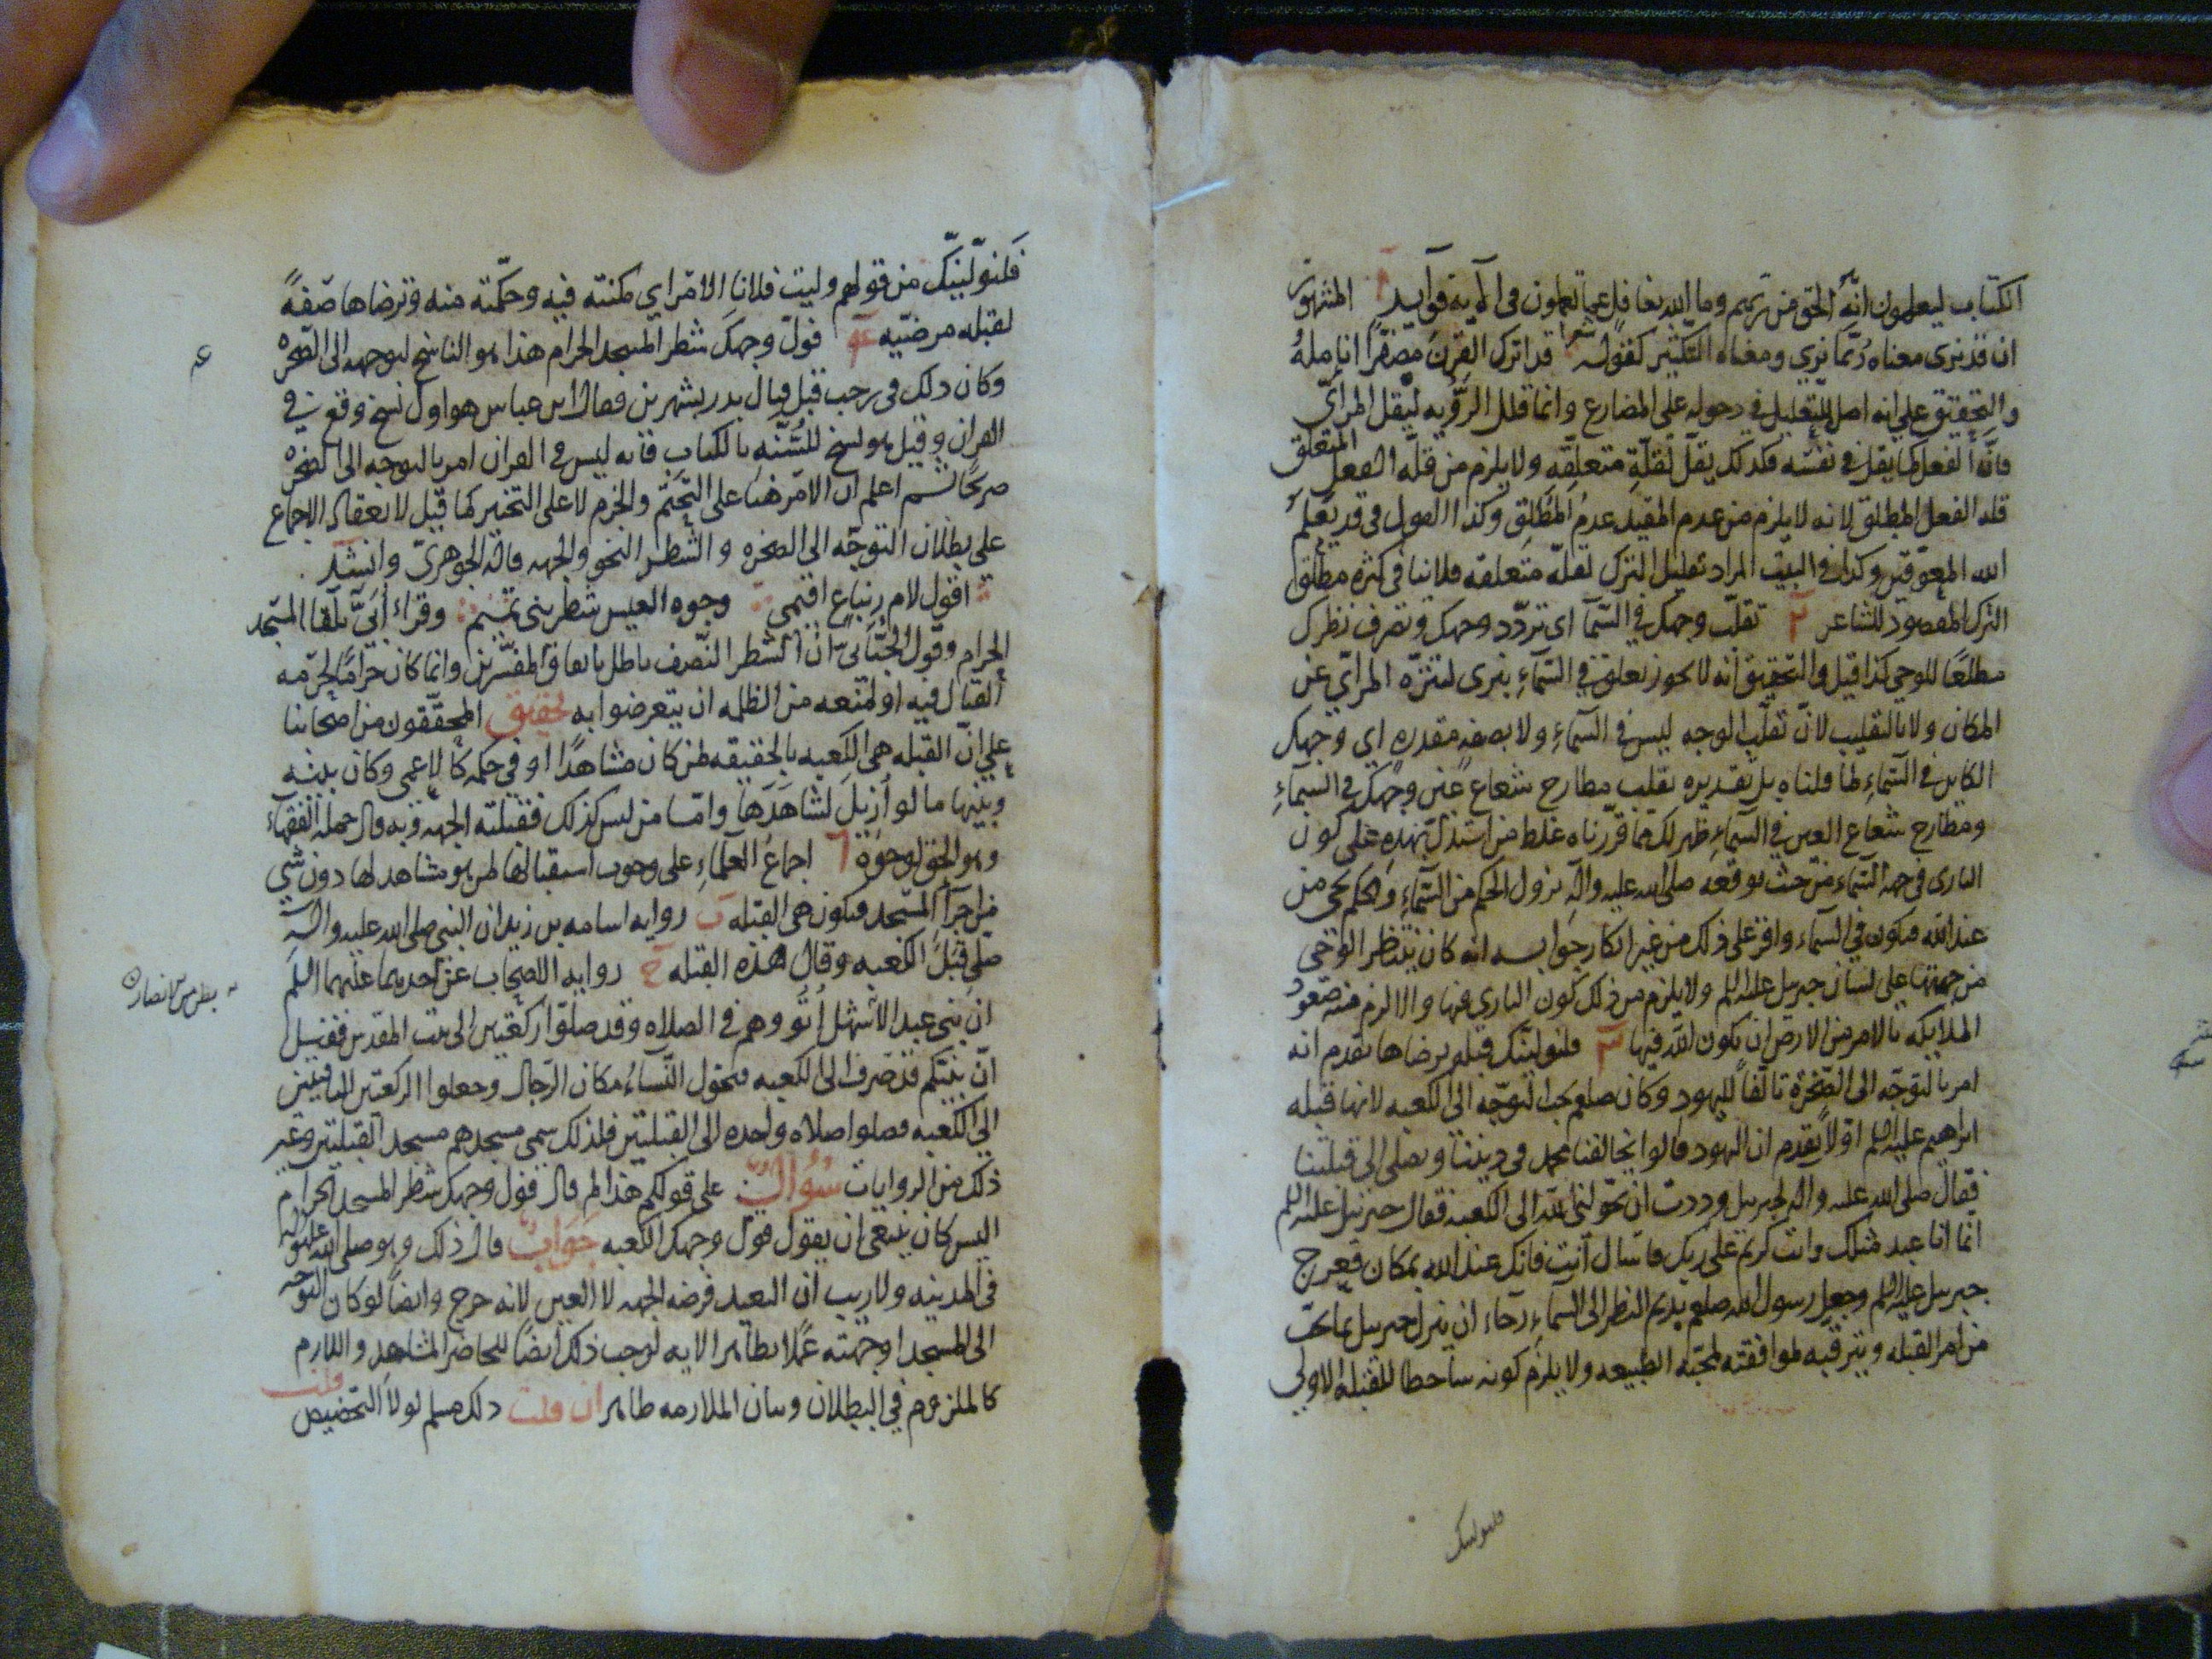 الكتاب ليعلمون انّه الحق من ربهم وما الله بغافل عما تعملون في الآية فوايد آ المشهور
ان قد نرى معناه ربّما نري ومعناه التكثير كقوله شعرا قد اترك القرن مصفرّا انامله
والتحقيق علي انه اصل للتقليل في دخوله على المضارع وانما قلل الرؤيه ليقل المرايّ
فانّ الفعل كما يقل في نفسه فكذلك يقلّ لقلّة متعلقه ولا يلزم من قلّه الفعل المتعلق
قله الفعل المطلق لانه لا يلزم من عدم المقيد عدم المطلق وكذا القول في قد يعلم
الله المعوقين وكذا في البيت المراد تقليل الترك لقلّة متعلقه فلا ينافي كثرة مطلق
الترك المقصود للشاعر ٢ تقلّب وجهك في السّمآ اى تردّد وجهك وتصرف نظرك
مطلعًا للوحي كذا قيل والتحقيق انه لا يجوز تعلق في السّمآءِ بنرى لتنزّه المرايّ عن
المكان ولا بالتقليب لانّ تقلّب الوجه ليس في السّمآءِ ولا بصفه مقدره اى وجهك
الكاين في السّمآءِ لما قلناه بل تقديره تقلب مطارح شعاع عين وجهك في السمآءِ
ومطارح شعاع العين في السّمآءِ ظهر لك مما قرّرناه غلط من استدلّ بهذه على كون
البارى في جهه السّمآء من حيث توقعه صلى الله عليه وآله نزول الحكم من السّمآءِ والحكم يجي من
عند الله فيكون في السمآء واقر على ذلك من غير انكار جوابه انه كان ينتظر الوحى
من جهتها على لسان جبريل عليه السلم ولا يلزم من ذلك كون الباري فيها والا لزم منه صعود
الملايكه بالامر من الارض ان يكون الله فيها ٣ فلنولينّك قبله ترضاها تقدم انه
امر بالتوجّه الى الصخرة تألّفًا لليهود وكان صلعم يحب التوجّه الى الكعبه لانها قبله
ابراهيم عليه السلم اوّلاً تقدم ان اليهود قالوا يخالفنا محمد في ديننا ويصلى الى قبلتنا
فقال صلى الله عليه واله لجبريل وددت ان يحوّلني الله الى الكعبه فقال جبريل عليه السلم
انما انا عبد مثلك وانت كريم على ربك فاسال انت فانك عند الله بمكان فعرج
جبريل عليه السلم وجعل رسول الله صلعم يديم النظر الى السمآءِ رجاء ان ينزل جبريل بما يحبّ
من امر القبله ويترقبه لموافقته لمحبّه الطبيعه ولا يلزم كونه ساخطا للقبلة الاولي
فلنولينك
فَلنولّينّك من قولهم وليت فلانا الامر اي مكنته فيه وحكّمته منه وترضاها صفةً
لقبله مرضيّه ٤ فولّ وجهك شطر المسجد الحرام هذا هو الناسخ لتوجهه الى الصخره
وكان ذلك في رجب قبل قتال بدر بشهرين فقال ابن عباس هو اول نسخ وقع في
القران وقيل هو نسخ للسُّنّه بالكتاب فانه ليس في القران امر بالتوجه الى الصخره
صريحًا ثم اعلم ان الامر هنا على التحتّم والجزم لا على التخيير كما قيل لانعقاد الاجماع
على بطلان التوجّه الى الصخره والشطر النحو والجهه قاله الجوهريّ وانشد
اقول لام زنباع اقيمى وجوه العيس شطر بنى تميم وقراء أُبيّ تلقآ المسجد
الحرام وقول الجبّائيّ انّ الشطر النّصف باطل باتفاق المفسّرين وانما كان حرامًا لحرمه
القتال فيه او لمنعه من الظلمه ان يتعرضوا به تحقيق المحقّقون من اصحابنا
علي انّ القبله هى الكعبه بالحقيقه لمن كان مشاهدًا او في حكمه كالاعمى وكان بينه
وبينها ما لو أزيل لشاهدها وامّا من ليس كذلك فقبلته الجهه وبه قال جمله الفقهآء
وهو الحق لوجوه آ اجماع العلمآءِ على وجوب استقبالها لمن هو مشاهد لها دون شي
من اجزآء المسجد فيكون هى القبله ب روايه اسامه بن زيد ان النبي صلى الله عليه واله
صلّي قبل الكعبه وقال هذه القبله ج روايه الاصحاب عن احدهما عليهما السلم
ان بني عبد الاشهل اُتُوا وهم في الصلاه وقد صلّوا ركعتين الى بيت المقدس فقيل
انّ نبيّكم قد صرف الى الكعبه فتحول النّساءُ مكان الرّجال وجعلوا الركعتين الباقيتين
الي الكعبه فصلوا صلاه واحده الى القبلتين فلذلك سمى مسجدهم مسجد القبلتين وغير
ذلك من الروايات سُؤالٌ على قولكم هذا لم قال فولّ وجهك شطر المسجد الحرام
اليس كان ينبغي ان يقول فولّ وجهك الكعبه جوابٌ قال ذلك وهو صلى الله عليه وآله
في المدينه ولا ريب ان البعيد فرضه الجهه لا العين لانه حرج وايضًا لو كان التوجه
الى المسجد او جهته عملا بظاهر الايه لوجب ذلك ايضًا للحاضر المشاهد واللازم
كالملزوم في البطلان وبيان الملازمه ظاهر ان قلت ذلك مسلم لولا التخصيص قلت
ع
بطن من الانصار